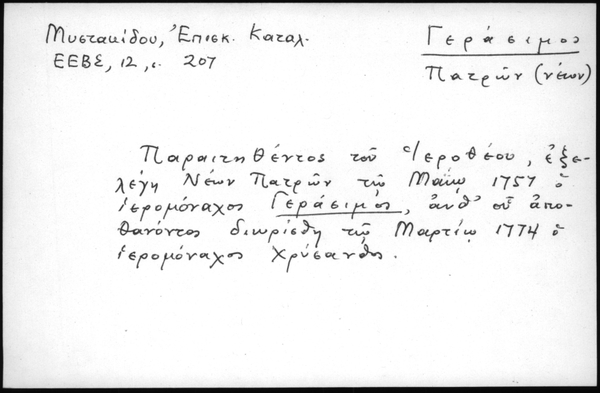 Μυστακίδου, Ἐπισκ. Καταλ.
ΕΕΒΣ, 12, σ. 207
Γεράσιμος
Πατρῶν (νέων)
Παραιτηθέντος τοῦ Ἱεροθέου, ἐξε-
λέγη Νέων Πατρῶν τῷ Μαΐῳ 1757 ὁ
ἱερομόναχος Γεράσιμος, ἀνθ' οὗ ἀπο-
θανόντος διωρίσθη τῷ Μαρτίῳ 1774 ὁ
ἱερομόναχος Χρύσανθος.